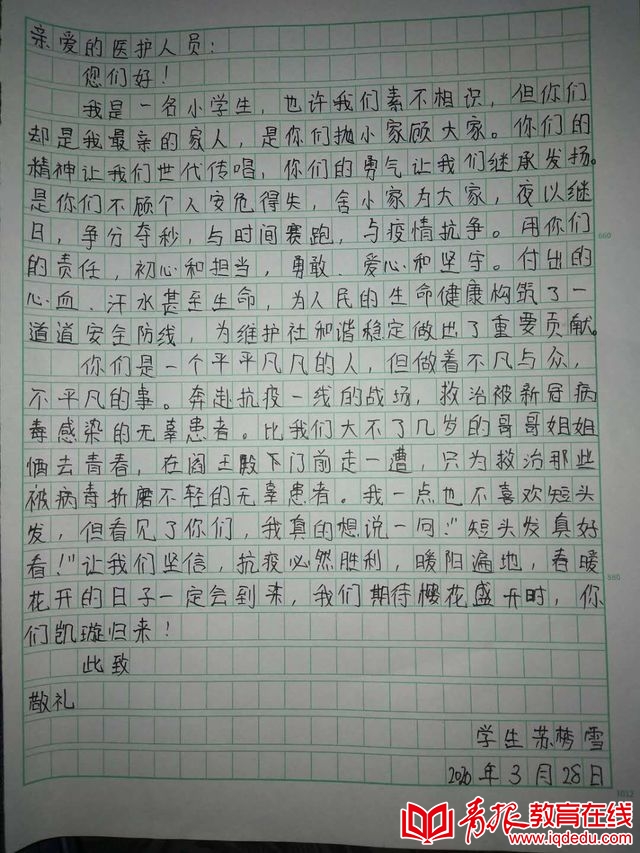 亲爱的医护人员：
您们好！
我是一名小学生，也许我们素不相识，但你们
却是我最亲的家人，是你们抛小家顾大家。你们的
精神让我们世代传唱，你们的勇气让我们继承发扬。
是你们不顾个人安危得失，舍小家为大家，夜以继
日，争分夺秒，与时间赛跑，与疫情抗争。用你们
的责任，初心和担当，勇敢、爱心和坚守。付出的
心血、汗水甚至生命，为人民的生命健康构筑了一
道道安全防线，为维护社和谐稳定做出了重要贡献。
你们是一个平平凡凡的人，但做着不凡与众，
不平凡的事。奔赴抗疫一线的战场，救治被新冠病
毒感染的无辜患者。比我们大不了几岁的哥哥姐姐
牺去青春，在阎王殿下门前走一遭，只为救治那些
被病毒折磨不轻的无辜患者。我一点也不喜欢短头
发，但看见了你们，我真的想说一句："短头发真好
看！"让我们坚信，抗疫必然胜利，暖阳遍地，春暖
花开的日子一定会到来，我们期待樱花盛开时，你
们凯璇归来！
此致
敬礼
学生 苏梦雪
2020年3月28日
660
880
1012
青报教育在线
www.iqdedu.com